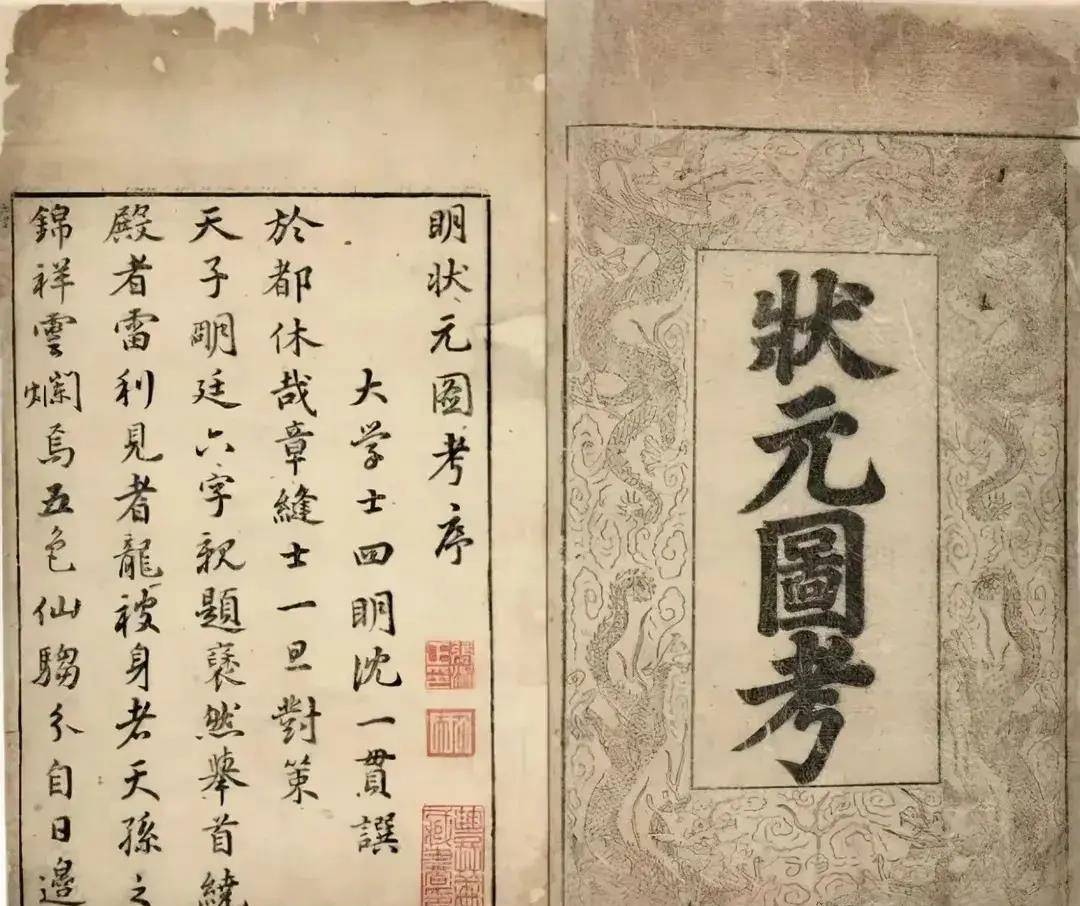 狀元圖考
明状元圖考序
大学士四明沈一貫譔
於都休哉章縫士一旦對策
天子明廷六字親題褎然舉首繞
殿者雷利見者龍被身者天孫之
錦祥雲爛焉五色仙騶尒自日邊